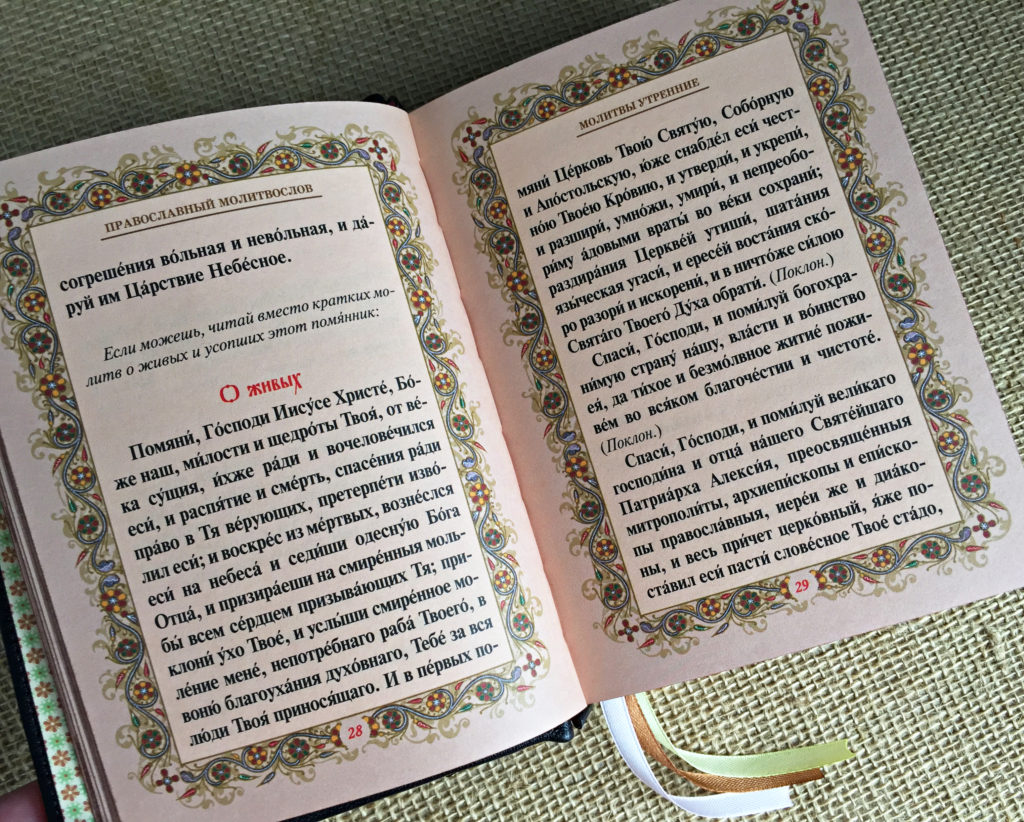 ПРАВОСЛАВНЫЙ МОЛИТВОСЛОВ
согреше́ния во́льная и нево́льная, и да́-
руй им Ца́рствие Небе́сное.
Если можешь, читай вместо кратких мо-
литв о живых и усопших этот помя́нник:
О живых
Помяни́, Го́споди Иису́се Христе́, Бо́-
же наш, ми́лости и щедро́ты Твоя́, от ве́-
ка су́щия, и́хже ра́ди и вочелове́чился
еси́, и распя́тие и сме́рть, спасе́ния ра́ди
пра́во в Тя ве́рующих, претерпе́ти изво́-
лил еси́; и воскре́с из ме́ртвых, возне́слся
еси́ на небеса́ и седи́ши одесну́ю Бо́га
Отца́, и призира́еши на смире́нныя моль-
бы́ всем се́рдцем призыва́ющих Тя; при-
клони́ у́хо Твое́, и услы́ши смире́нное мо-
ле́ние мене́, непотре́бнаго раба́ Твоего́, в
воню́ благоуха́ния духо́внаго, Тебе́ за вся
лю́ди Твоя́ принося́щаго. И в пе́рвых по-
28
МОЛИТВЫ УТРЕННИЕ
мяни́ Це́рковь Твою́ Святу́ю, Собо́рную
и Апо́стольскую, ю́же снабде́л еси́ чест-
но́ю Твое́ю Кро́вию, и утверди́, и укрепи́,
и разшири́, умно́жи, умири́, и непреобо-
ри́му а́довыми враты́ во ве́ки сохрани́;
раздира́ния Церкве́й утиши́, шата́ния
язы́ческая угаси́, и ересе́й воста́ния ско́-
ро разори́ и искорени́, и в ничто́же си́лою
Свята́го Твоего́ Ду́ха обрати́. (Поклон.)
Спаси́, Го́споди, и поми́луй богохра-
ни́мую страну́ на́шу, вла́сти и во́инство
ея́, да ти́хое и безмо́лвное житие́ пожи-
ве́м во вся́ком благоче́стии и чистоте́.
(Поклон.)
Спаси́, Го́споди, и поми́луй вели́каго
господи́на и отца́ на́шего Святе́йшаго
Патриа́рха Алекси́я, преосвяще́нныя
митрополи́ты, архиепи́скопы и епи́ско-
пы правосла́вныя, иере́и же и диа́ко-
ны, и весь при́чет церко́вный, я́же по-
ста́вил еси́ пасти́ слове́сное Твое́ ста́до,
29